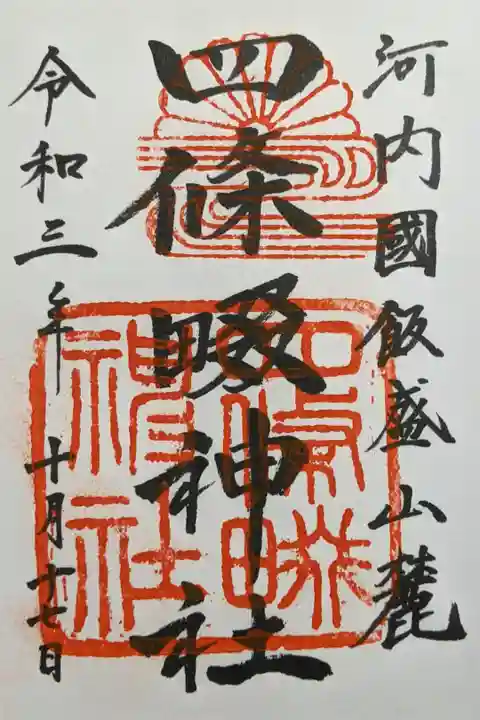 河内國飯盛山麓
四條畷神社
令和三年十月十七日
四條畷
神社